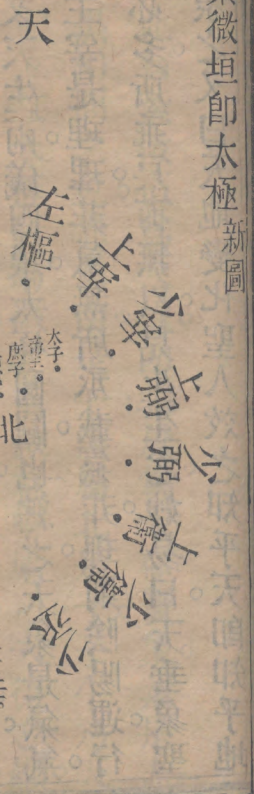 微垣卽太極新圖
天
左樞
上宰
少宰
上弼
少弼
上衛
少衛
少丞
太子
帝王
庶子
北